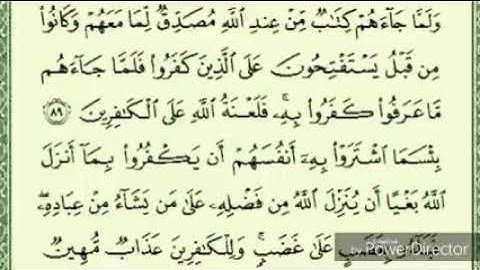 وَلَمَّا جَاءَهُمْ كِتَابٌ مِّنْ عِندِ اللَّهِ مُصَدِّقٌ لِّمَا مَعَهُمْ وَكَانُوا
مِن قَبْلُ يَسْتَفْتِحُونَ عَلَى الَّذِينَ كَفَرُوا فَلَمَّا جَاءَهُم
مَّا عَرَفُوا كَفَرُوا بِهِ ۚ فَلَعْنَةُ اللَّهِ عَلَى الْكَافِرِينَ ٨٩
بِئْسَمَا اشْتَرَوْا بِهِ أَنفُسَهُمْ أَن يَكْفُرُوا بِمَا أَنزَلَ
اللَّهُ بَغْيًا أَن يُنَزِّلَ اللَّهُ مِن فَضْلِهِ عَلَىٰ مَن يَشَاءُ مِنْ عِبَادِهِ ۖ
بِغَضَبٍ عَلَىٰ غَضَبٍ ۚ وَلِلْكَافِرِينَ عَذَابٌ مُّهِينٌ
by PowerDirector